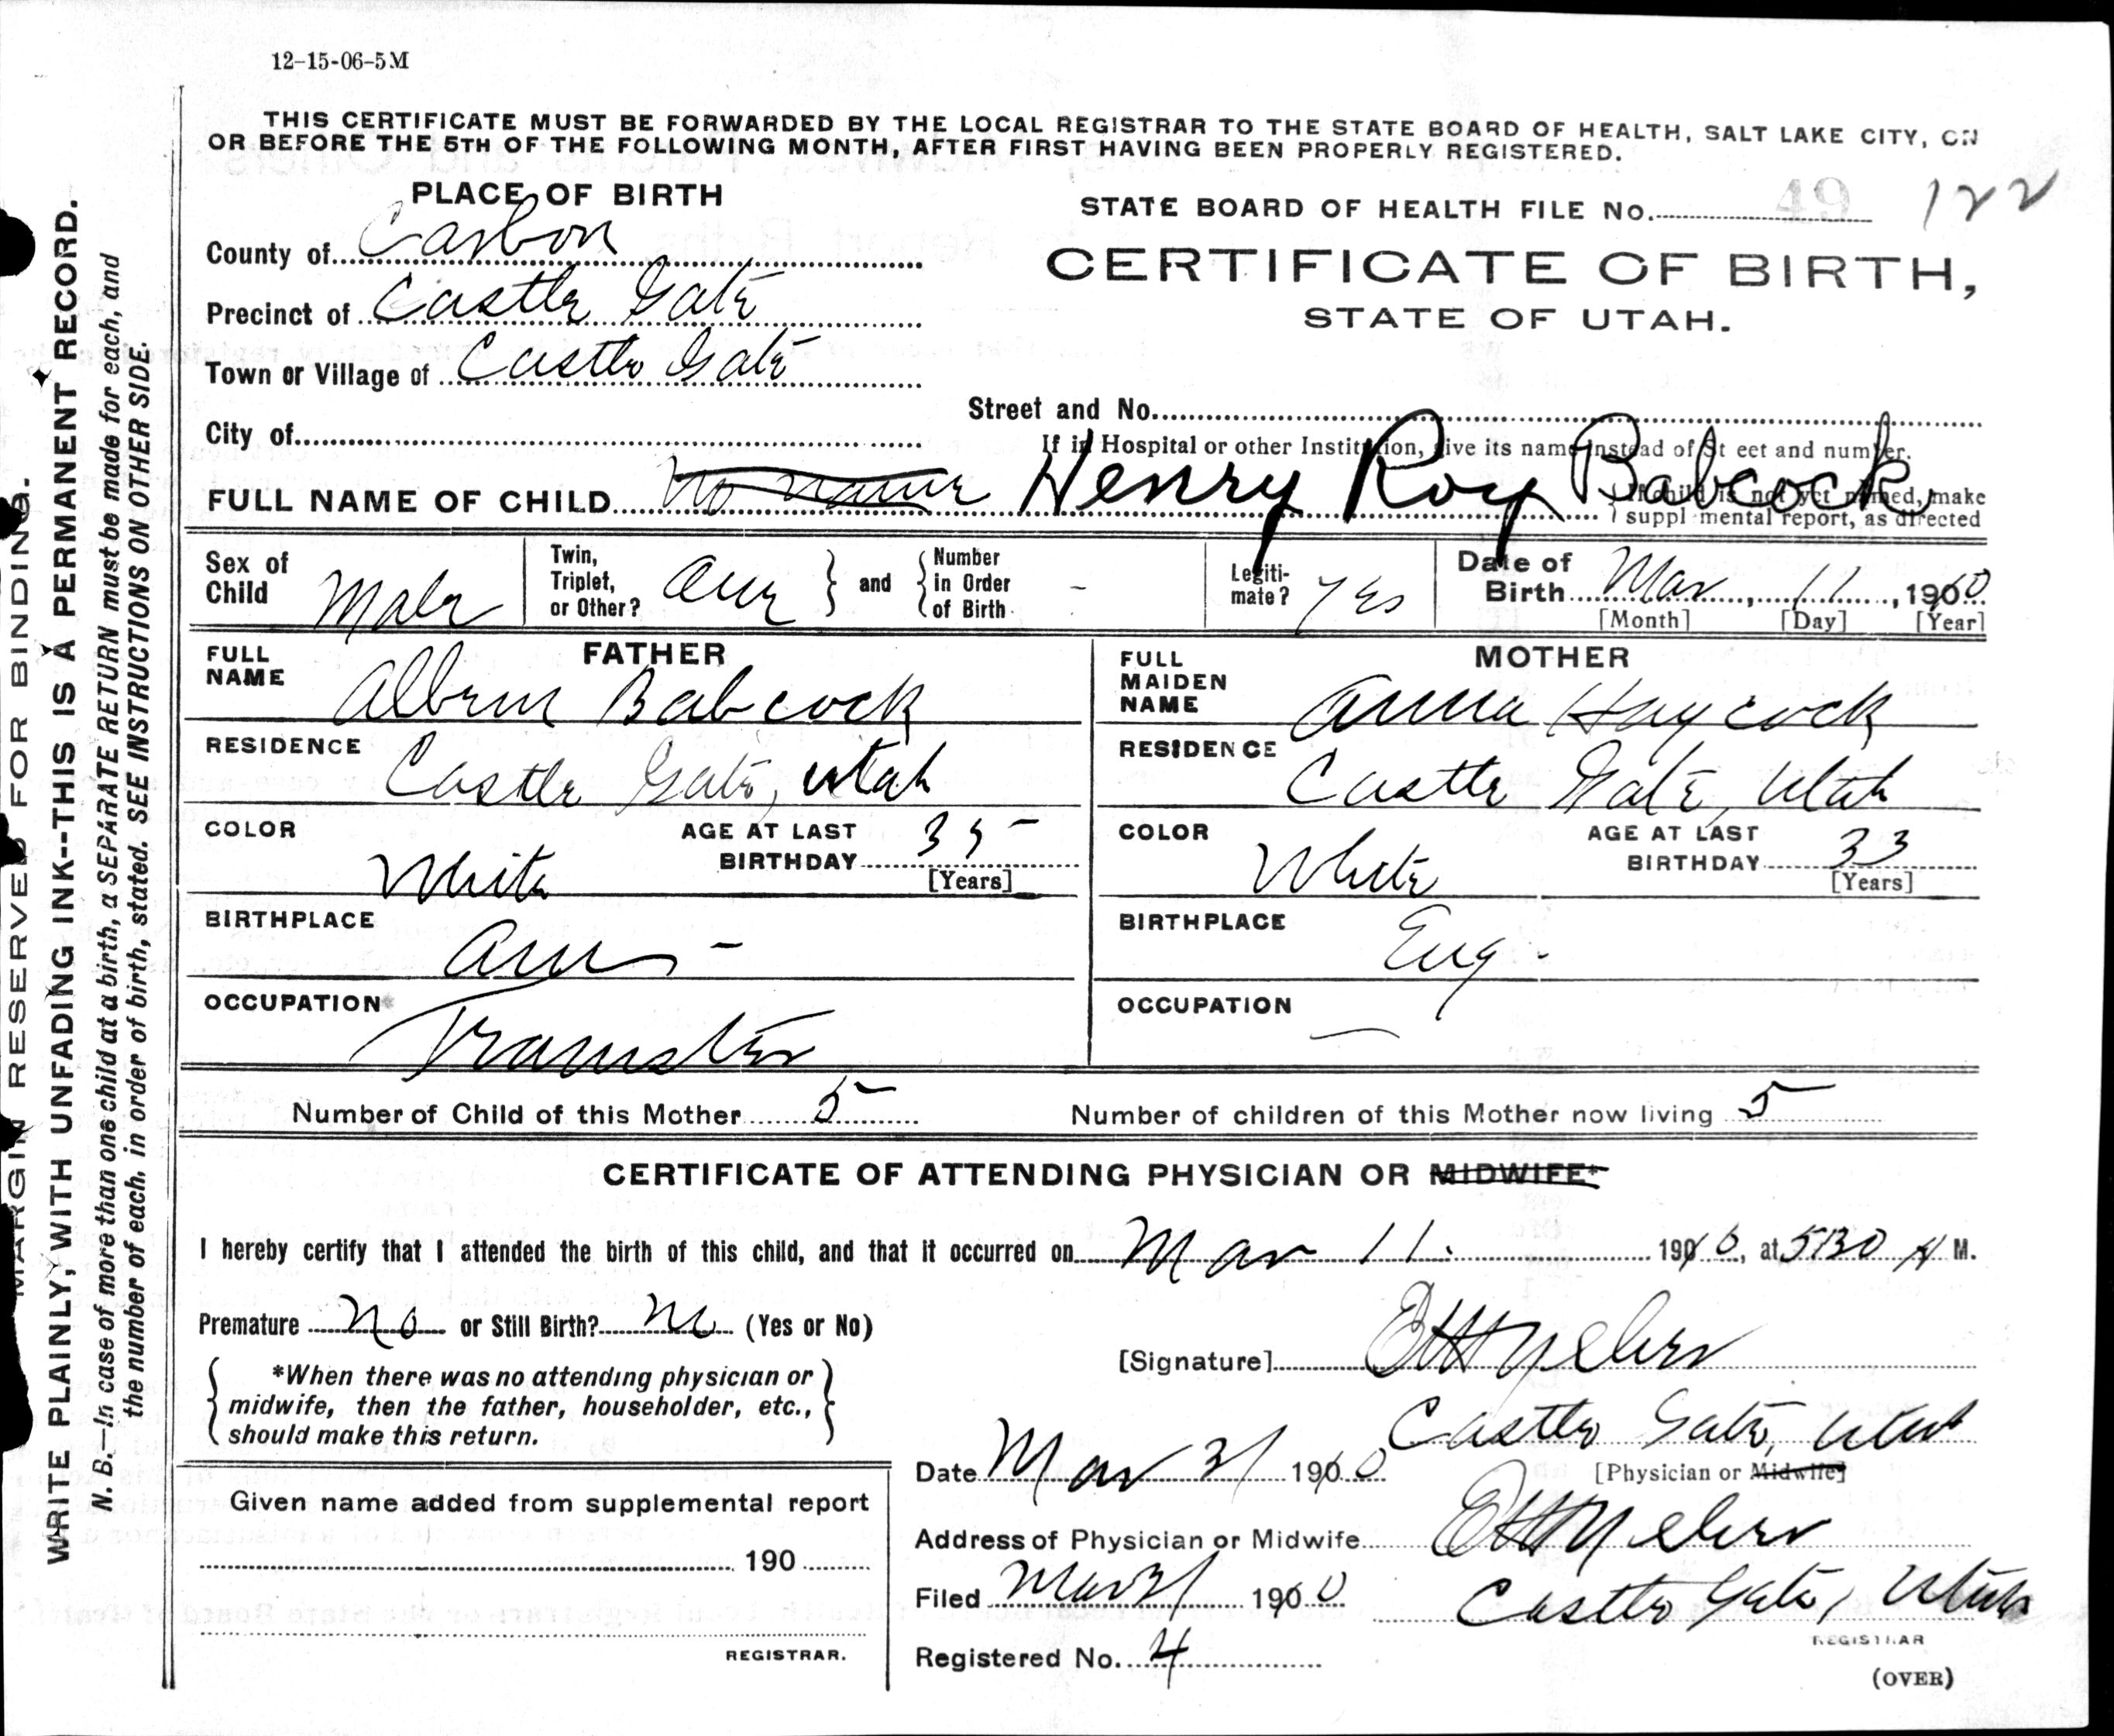 12-15-06-5M
THIS CERTIFICATE MUST BE FORWARDED BY THE LOCAL REGISTRAR TO THE STATE BOARD OF HEALTH, SALT LAKE CITY, ON
OR BEFORE THE 5TH OF THE FOLLOWING MONTH, AFTER FIRST HAVING BEEN PROPERLY REGISTERED.
MARGIN RESERVED FOR BINDING.
WRITE PLAINLY, WITH UNFADING INK--THIS IS A PERMANENT RECORD.
N. B.—In case of more than one child at a birth, a SEPARATE RETURN must be made for each, and
the number of each, in order of birth, stated. SEE INSTRUCTIONS ON OTHER SIDE.
PLACE OF BIRTH
County of Carbon
Precinct of Castle Gate
Town or Village of Castle Gate
City of
STATE BOARD OF HEALTH FILE No. 49 122
CERTIFICATE OF BIRTH,
STATE OF UTAH.
Street and No.
If in Hospital or other Institution, give its name instead of St eet and number.
FULL NAME OF CHILD No name Henry Roy Babcock
If child is not yet named, make
suppl mental report, as directed
Sex of Child Male
Twin, Triplet, or Other? and Number in Order of Birth -
Legiti-mate? Yes
Date of Birth Mar 11, 1910
[Month] [Day] [Year]
FATHER
FULL NAME Babcock
RESIDENCE Castle Gate, Utah
COLOR White
AGE AT LAST BIRTHDAY 35
[Years]
BIRTHPLACE Am -
OCCUPATION
MOTHER
FULL MAIDEN NAME Anna Haycock
RESIDENCE Castle Gate, Utah
COLOR White
AGE AT LAST BIRTHDAY 33
[Years]
BIRTHPLACE Eng.
OCCUPATION —
Number of Child of this Mother 5
Number of children of this Mother now living 5
CERTIFICATE OF ATTENDING PHYSICIAN OR MIDWIFE*
I hereby certify that I attended the birth of this child, and that it occurred on Mar 11. 1910, at 5:30 A M.
Premature No or Still Birth? No (Yes or No)
*When there was no attending physician or
midwife, then the father, householder, etc.,
should make this return.
[Signature]
Castle Gate, Utah
[Physician or Midwife]
Date Mar 31 1910
Address of Physician or Midwife
Filed Mar 31 1910
Castle Gate, Utah
REGISTRAR
Registered No. 4
(OVER)
Given name added from supplemental report
190
REGISTRAR.